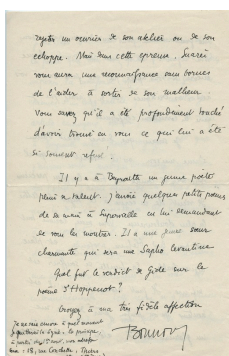 rejeter un ouvrier de son atelier ou de son
échoppe. Mais dans cette épreuve, Suarès
vous aura une reconnaissance sans bornes
de l'aider à sortir de son malheur.
Vous savez qu'il a été profondément touché
d'avoir trouvé en vous ce qui lui a été
si souvent refusé.
Il y a à Beyrouth un jeune poète
plein de talent. J'envoie quelques petits poèmes
de sa main à Supervielle en lui demandant
de vous les montrer. Il a une jeune sœur
charmante qui sera une Sapho levantine
Quel fut le verdict de Gide sur le
poème d'Hoppenot ?
Croyez à ma très fidèle affection
Bounoure
Je ne sais encore à quel moment
je quitterai la
à partir du 15 août, mon adresse
sera : 18, rue